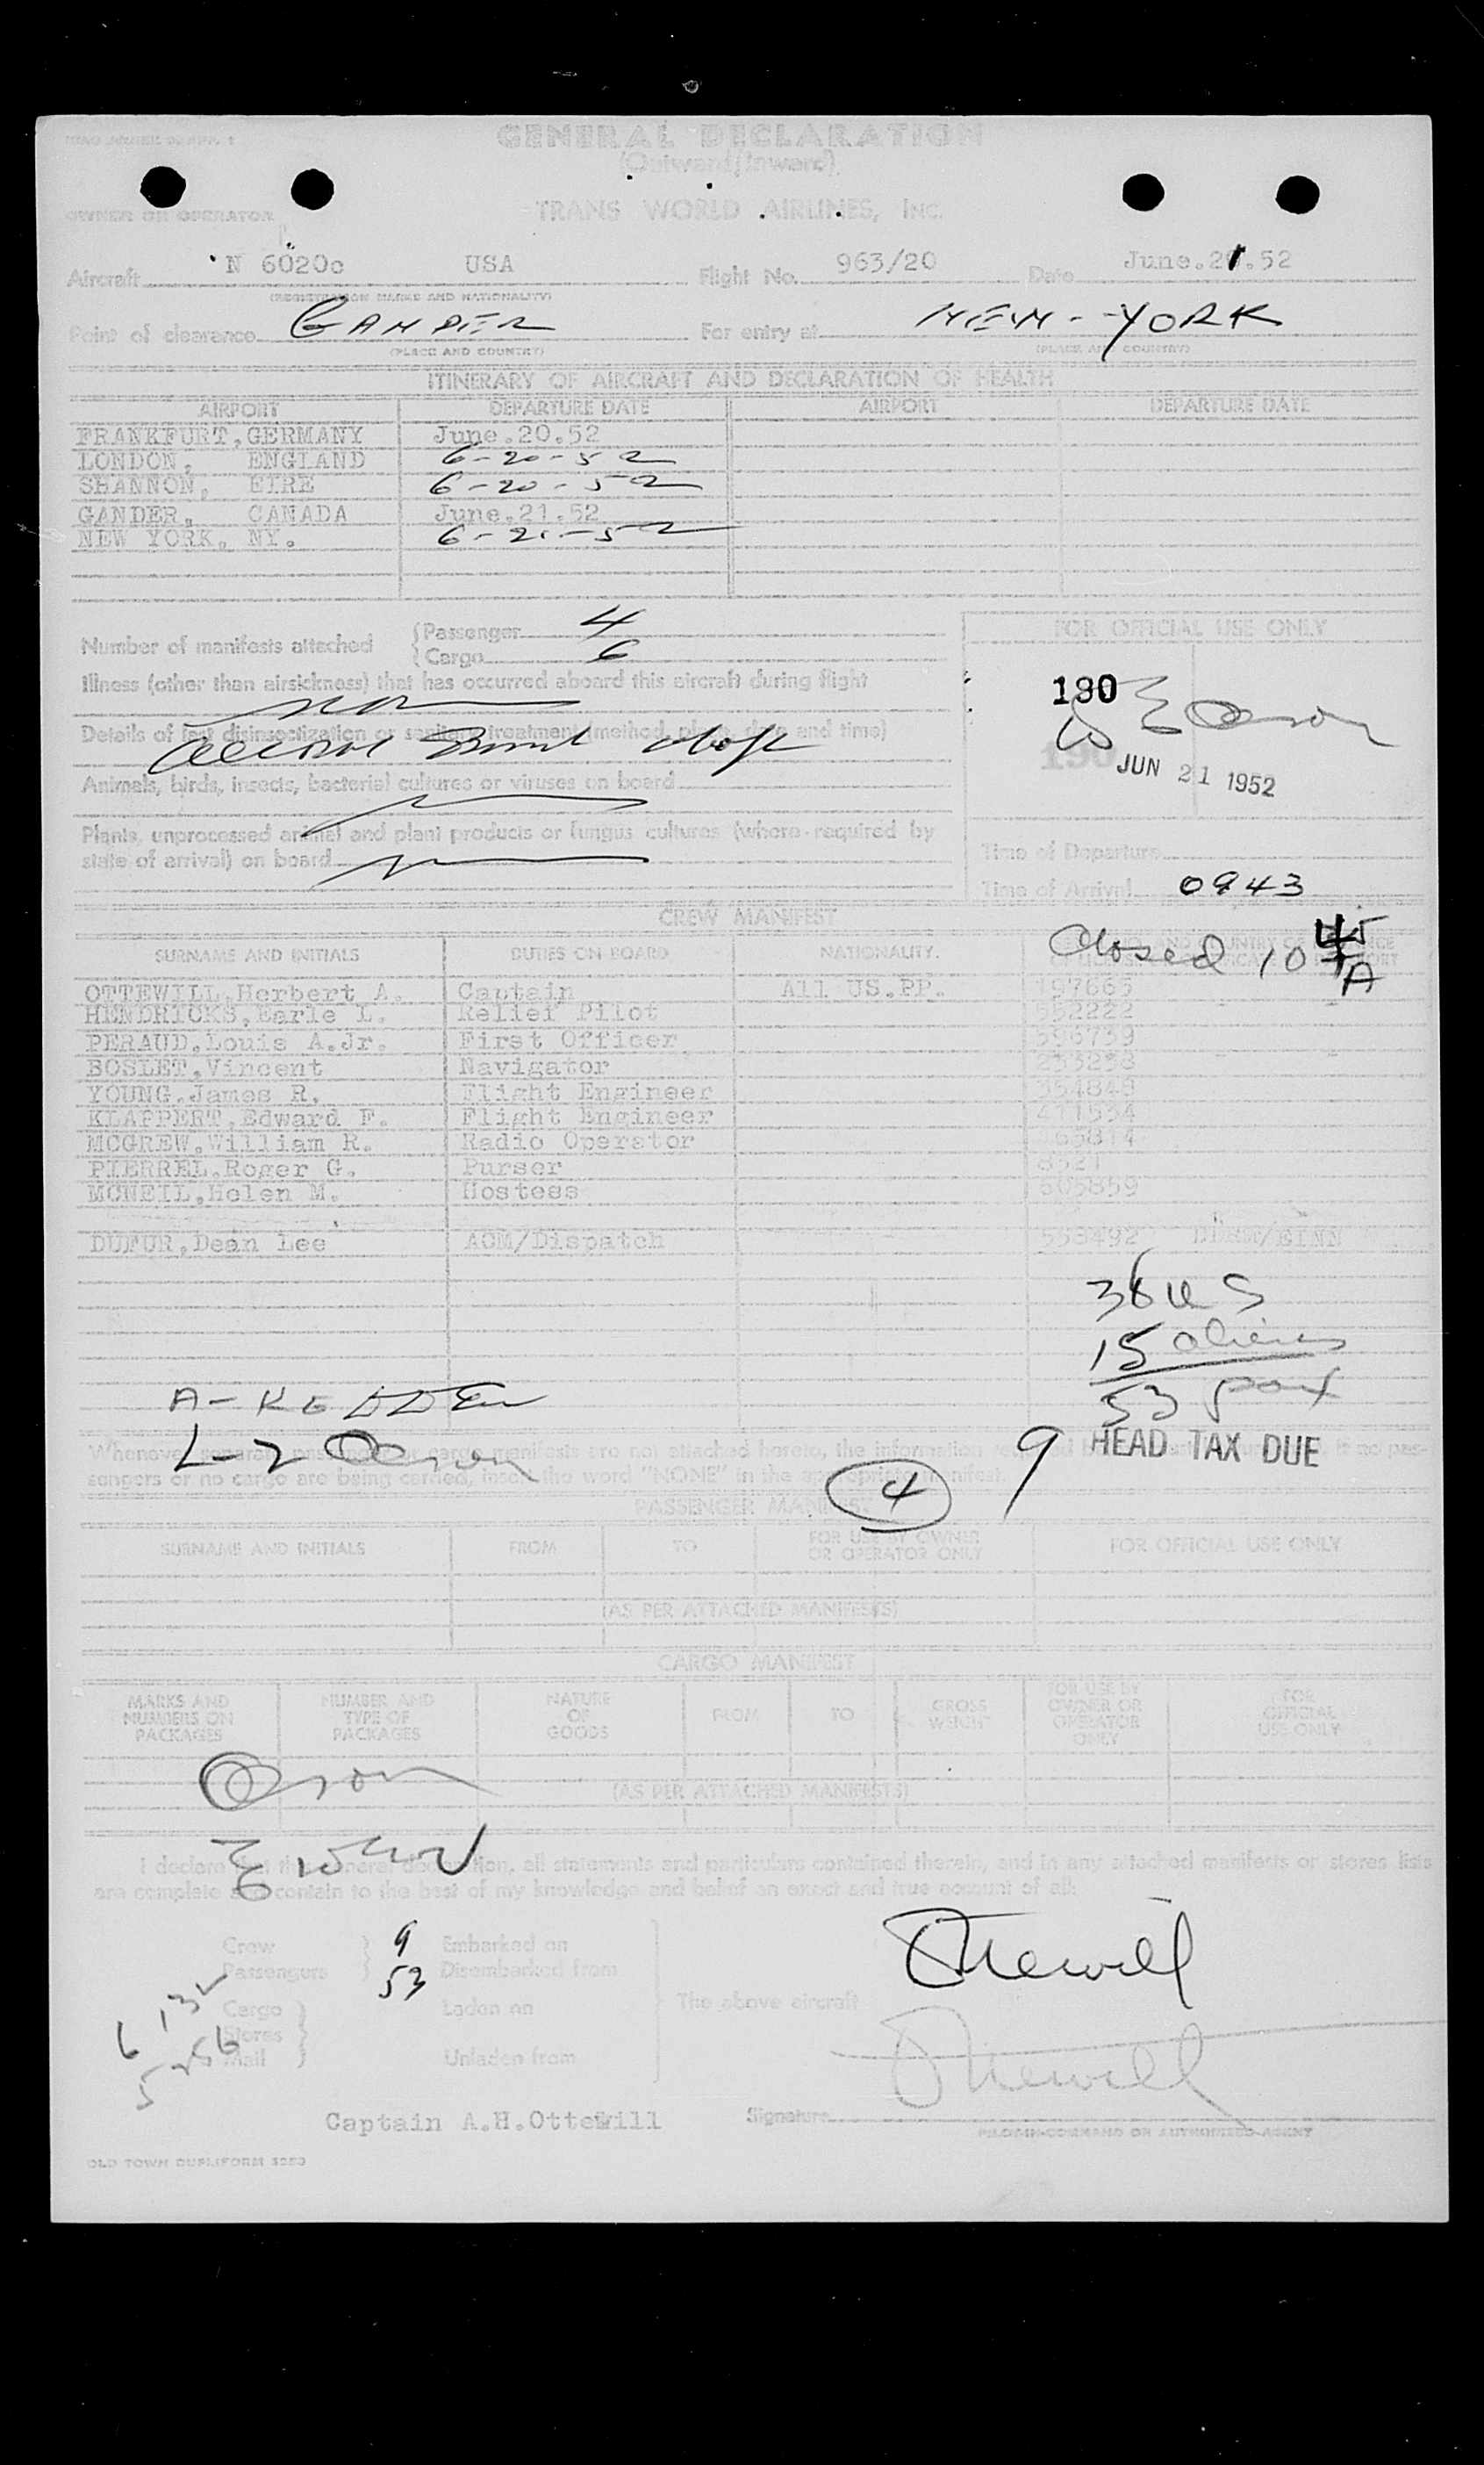 GENERAL DECLARATION
(Outward/Inward)
OWNER OR OPERATOR TRANS WORLD AIRLINES, INC.
Aircraft N 6020c USA Flight No. 963/20 Date June.21.52
(REGISTRATION MARKS AND NATIONALITY)
Point of clearance GANDER For entry at NEW-YORK
(PLACE AND COUNTRY) (PLACE AND COUNTRY)
ITINERARY OF AIRCRAFT AND DECLARATION OF HEALTH
AIRPORT DEPARTURE DATE AIRPORT DEPARTURE DATE
FRANKFURT,GERMANY June.20.52
LONDON, ENGLAND 6-20-52
SHANNON, EIRE 6-20-52
GANDER, CANADA June.21.52
NEW YORK, NY. 6-21-52
Number of manifests attached {Passenger 4
{Cargo 6
FOR OFFICIAL USE ONLY
Illness (other than airsickness) that has occurred aboard this aircraft during flight
190
Details of last disinsectization or sanitary treatment (method, place, date and time)
190 JUN 21 1952
Animals, birds, insects, bacterial cultures or viruses on board
Plants, unprocessed animal and plant products or fungus cultures (where required by
state of arrival) on board
Time of Departure
Time of Arrival 0943
CREW MANIFEST
Closed 10 45 A
SURNAME AND INITIALS DUTIES ON BOARD NATIONALITY.
OTTEWILL,Herbert A. Captain All US.PP. 197665
HENDRICKS,Earle L. Relief Pilot 552222
PERAUD,Louis A.Jr. First Officer 596739
BOSLET,Vincent Navigator 253258
YOUNG,James R. Flight Engineer 354848
KLAPPERT,Edward F. Flight Engineer 411554
MCGREW,William R. Radio Operator
PIERREL,Roger G. Purser 8521
MCNEIL,Helen M. Hostess 605859
DUFUR,Dean Lee ACM/Dispatch 553492
US
15 aliens
53 pax
L-2
Whenever separate passenger or cargo manifests are not attached hereto, the information
sengers or no cargo are being carried, insert the word "NONE" in the appropriate manifest.
9 HEAD TAX DUE
4
PASSENGER MANIFEST
SURNAME AND INITIALS FROM TO FOR USE BY OWNER OR OPERATOR ONLY FOR OFFICIAL USE ONLY
(AS PER ATTACHED MANIFESTS)
CARGO MANIFEST
MARKS AND NUMBERS ON PACKAGES NUMBER AND TYPE OF PACKAGES NATURE OF GOODS FROM TO GROSS WEIGHT FOR USE BY OWNER OR OPERATOR ONLY FOR OFFICIAL USE ONLY
(AS PER ATTACHED MANIFESTS)
I declare that the general declaration, all statements and particulars contained therein, and in any attached manifests or stores lists
are complete and contain to the best of my knowledge and belief an exact and true account of all:
Crew 9 Embarked on
Passengers 53 Disembarked from
Cargo Laden on The above aircraft
Stores
Mail Unladen from
Ottewill
Ottewill
Captain A.H.Ottewill Signature
PILOT-IN-COMMAND OR AUTHORIZED AGENT
OLD TOWN DUPLIFORM